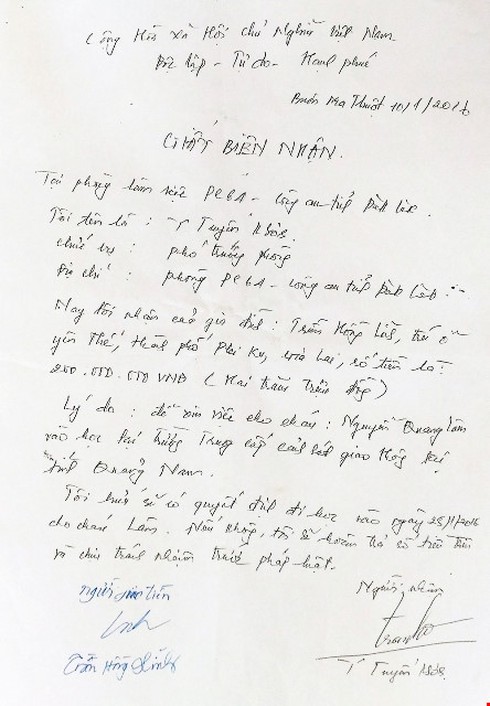 Cộng Hòa xã Hội chủ Nghĩa Việt Nam
Độc lập - Tự do - Hạnh phúc
Buôn Ma Thuột 10/1/2016
GIẤY BIÊN NHẬN.
Tại phòng làm việc PC61 - công an tỉnh Đăk Lăk.
Tôi tên là : Y Tuyên
chức vụ : phó trưởng phòng
Địa chỉ : phòng PC61 - công an tỉnh Đăk Lăk.
Nay tôi nhận của gia đình : Trần Hồng, trú ở
yên Thế, thành phố Plei Ku, Gia Lai, số tiền là:
200.000.000 VNĐ ( Hai trăm triệu đồng )
Lý do : để xin việc cho cháu : Nguyễn Quang Lâm
vào học tại trường Trung cấp cảnh sát giao thông tại
tỉnh Quảng Nam.
Tôi hứa sẽ có quyết định đi học vào ngày 25/1/2016
cho cháu Lâm. Nếu không, tôi sẽ hoàn trả số tiền trên
và chịu trách nhiệm trước pháp luật.
Người giao tiền
Người nhận
Trần Hồng
Y Tuyên